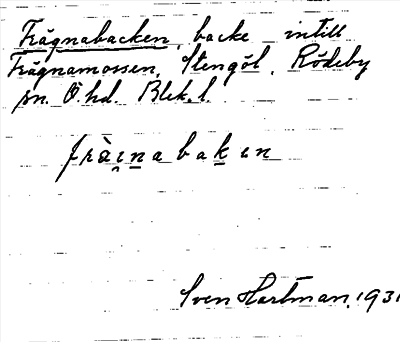 Frägnabacken, backe intill
Frägnamossen, Stengöl, Rödeby
sn. Ö. hd. Blek. l.
fràɪ̯n̲abak̲ɪn
Sven Hartman, 1931